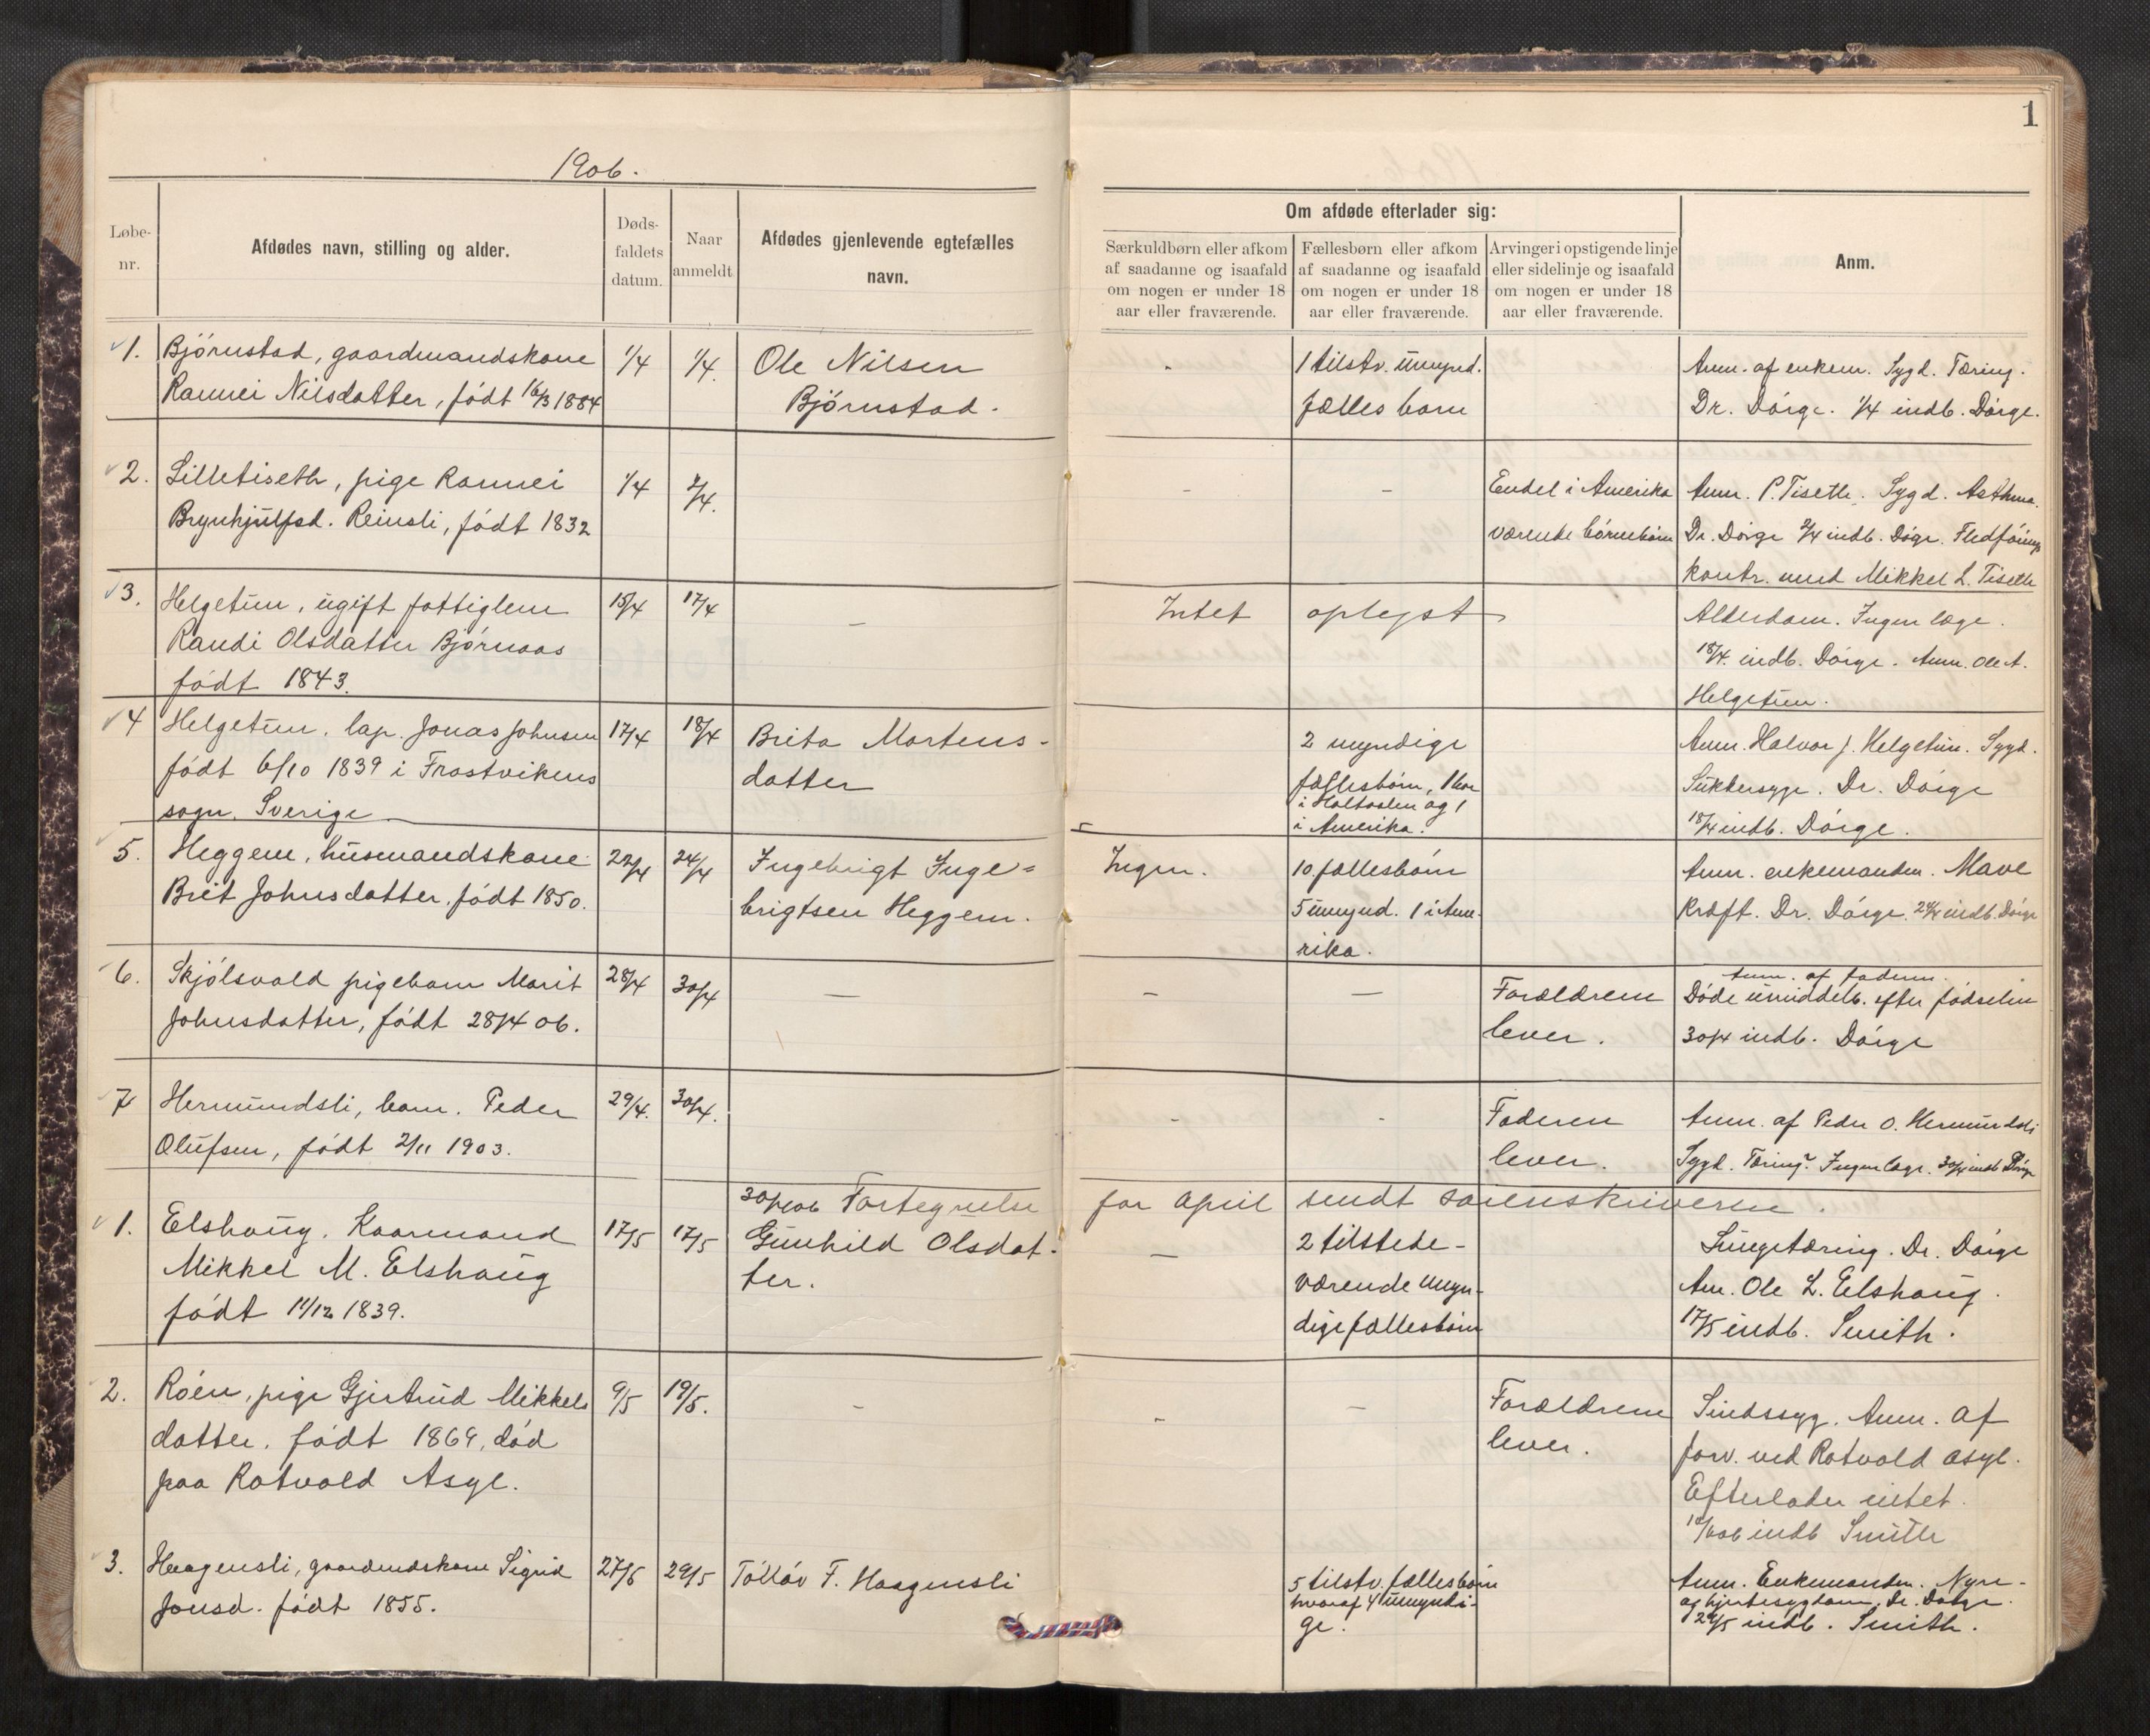 1
1906.
Løbe-
nr.
Afdødes navn, stilling og alder.
Døds-
faldets
datum.
Naar
anmeldt
Afdødes gjenlevende egtefælles
navn.
Om afdøde efterlader sig:
Særkuldbørn eller afkom
af saadanne og isaafald
om nogen er under 18
aar eller fraværende.
Fællesbørn eller afkom
af saadanne og isaafald
om nogen er under 18
aar eller fraværende.
Arvinger i opstigende linje
eller sidelinje og isaafald
om nogen er under 18
aar eller fraværende.
Anm.
1.
Bjørnstad, gaardmandskone
Rannei Nilsdatter, født 16/3 1884
1/4
1/4.
Ole Nilsen
Bjørnstad.
1 tilstv. umynd.
fælles barn
Anm. af enkem. Sygd. Tæring.
Dr. Dørge. 1/4 indb. Dørge.
2.
Lilletiseth, pige Rannei
Brynhjulfsd. Reinsli, født 1832
1/4
2/4.
-
-
Endel i Amerika
værende børnebørn
Anm. P. Tiseth. Sygd. Asthma.
Dr. Dørge 2/4 indb. Døge. Fledførings
kontr. med Mikkel L. Tiseth
3.
Helgetun, ugift fattiglem
Randi Olsdatter Bjørnaas
født 1843.
15/4
17/4
-
Intet oplyst
Alderdom. Ingen læge.
18/4. indb. Dørge. Anm. Ole A.
Helgetun.
4
Helgetun, lap. Jonas Johnsen
født 6/10 1839 i Frostvikens
sogn. Sverige
17/4
18/4
Brita Mortens-
datter
2 myndige
fællesbørn, 1 bor
i Holtaalen og 1
i Amerika.
Anm. Halvor J. Helgetun. Sygd.
Sukkersyge. Dr. Dørge
18/4 indb. Dørge.
5.
Heggem, husmandskone
Brit Johnsdatter, født 1850.
22/4
24/4
Ingebrigt Inge=
brigtsen Heggem.
Ingen.
10 fællesbørn
5 umynd. 1 i Ame-
rika.
Anm. enkemanden. Mave
kræft. Dr. Dørge. 24/4 indb. Dørge
6.
Skjølsvold pigebarn Marit
Johnsdatter, født 28/4 06.
28/4
30/4
-
-
-
Forældrene
lever.
Anm. af faderen.
Døde umiddelb. efter fødselen
30/4 indb. Dørge
7
Hermundsli, barn. Peder
Olufsen, født 2/11 1903.
29/4.
30/4.
-
-
Faderen
lever.
Anm. af Peder O. Hermundsli
Sygd. Tæring? Ingen læge. 30/4 indb Dørge
30/4 06 Fortegnelse for April sendt sorenskriveren.
1.
Elshaug. Kaarmand
Mikkel M. Elshaug
født 11/12 1839.
17/5
17/5
Gunhild Olsdat-
ter.
-
2 tilstede-
værende myn-
dige fællesbørn
Lungetæring. Dr. Dørge
Am. Ole L. Elshaug.
17/5 indb. Smith.
2.
Røen, pige Gjertrud Mikkels
datter. født 1869, død
paa Rotvold Asyl.
9/5
19/5.
-
-
-
Forældrene
lever.
Sindssyg. Anm. af
forv. ved Rotvold asyl.
Efterlader intet.
indb Smith
3.
Haagensli, gaardmdskone Sigrid
Jonsd. født 1855.
27/5
29/5
Tollöv F. Haagensli
5 tilstv. fællesbørn
hvoraf 4 umyndi-
ge.
Anm. Enkemanden. Nyre-
og hjertesygdom. Dr. Dørge.
29/5 indb. Smith.